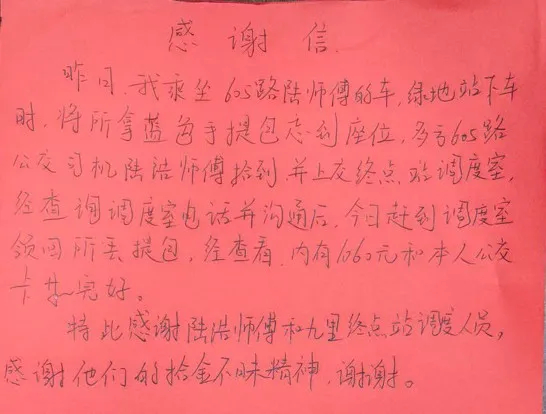 感谢信.
昨日,我乘坐605路陆师傅的车,绿地站下车
时,将所拿蓝色手提包忘到座位,多亏605路
公交司机陆浩师傅拾到,并上交终点站调度室,
经查询调度室电话并沟通后,今日赶到调度室
领回所丢提包,经查看,内有1060元和本人公交
卡完好。
特此感谢陆浩师傅和九里终点站调度人员,
感谢他们的拾金不昧精神,谢谢。